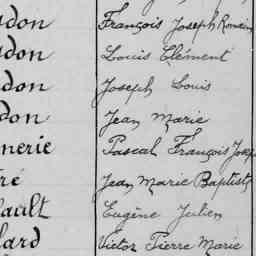 don François Joseph Romain
don Louis Clément
don Joseph Louis
don Jean Marie
nerie Pascal François Josep
ré Jean Marie Baptiste
ault Eugène Julien
lard Victor Pierre Marie